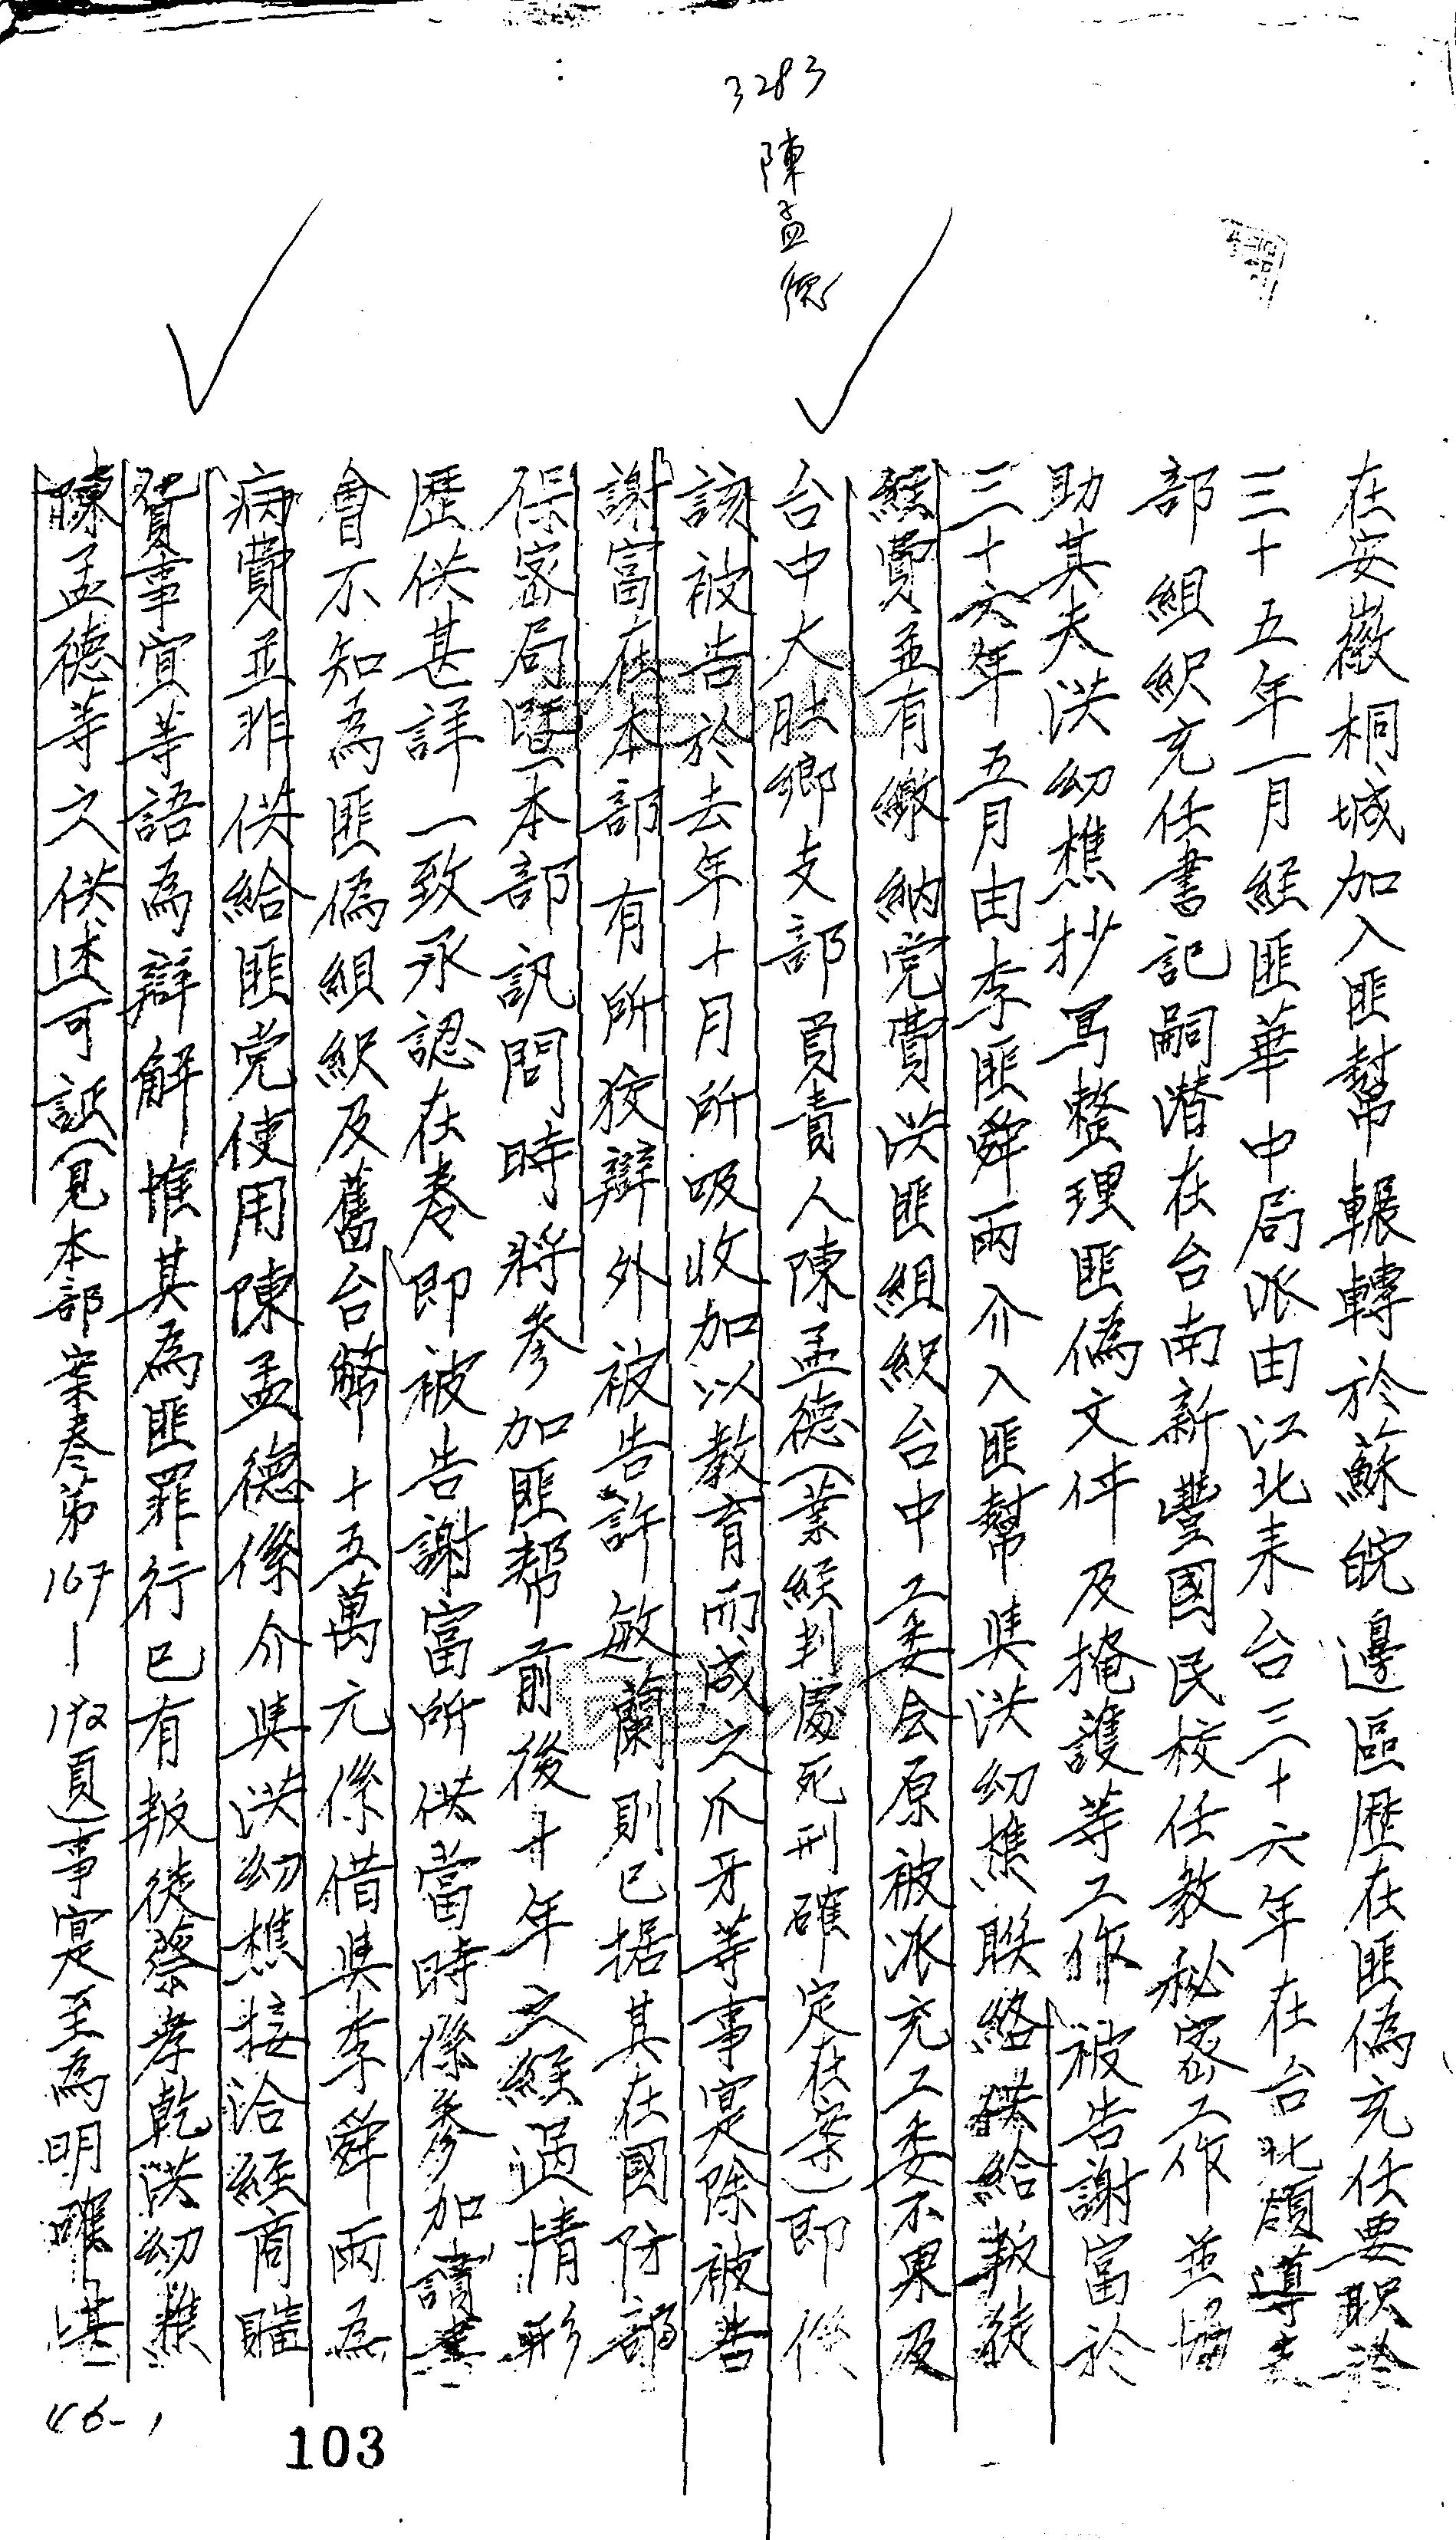 3283
陳孟德
在安徽桐城加入匪幫輾轉於蘇皖邊區歷在匪偽充任要职於
三十五年一月經匪華中局派由江北来台三十六年在台北領導支
部組織充任書記嗣潛在台南新豐國民校任教秘密工作並協
助其夫洪幼樵抄写整理匪偽文件及掩護等工作被告謝富於
三十六年五月由李匪舜雨介入匪幫與洪幼樵聯絡供給叛徒
經費並有繳納党費洪匪組織台中工委会原被派充工委不果及
台中大肚鄉支部負責人陳孟德（業經判處死刑確定在案）即係
該被告於去年十月所吸收加以教育而成之爪牙等事寔除被告
謝富在本部有所狡辯外被告許敏蘭則已据其在國防部
保密局暨本部訊問時將參加匪帮前後十年之經過情形
歷供甚詳一致承認在卷即被告謝富所供當時係參加讀書
會不知為匪偽組織及舊台幣十五萬元係借與李舜雨為
病費並非供給匪党使用陳孟德係介與洪幼樵接洽經商賍
貨事宜等語為辯解惟其為匪罪行已有叛徒蔡孝乾洪幼樵
陳孟德等之供述可証（見本部案卷第167—192頁）事寔至為明確堪
103